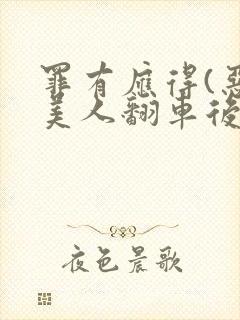 罪有應得(惡
美人翻車後
夜色晨歌